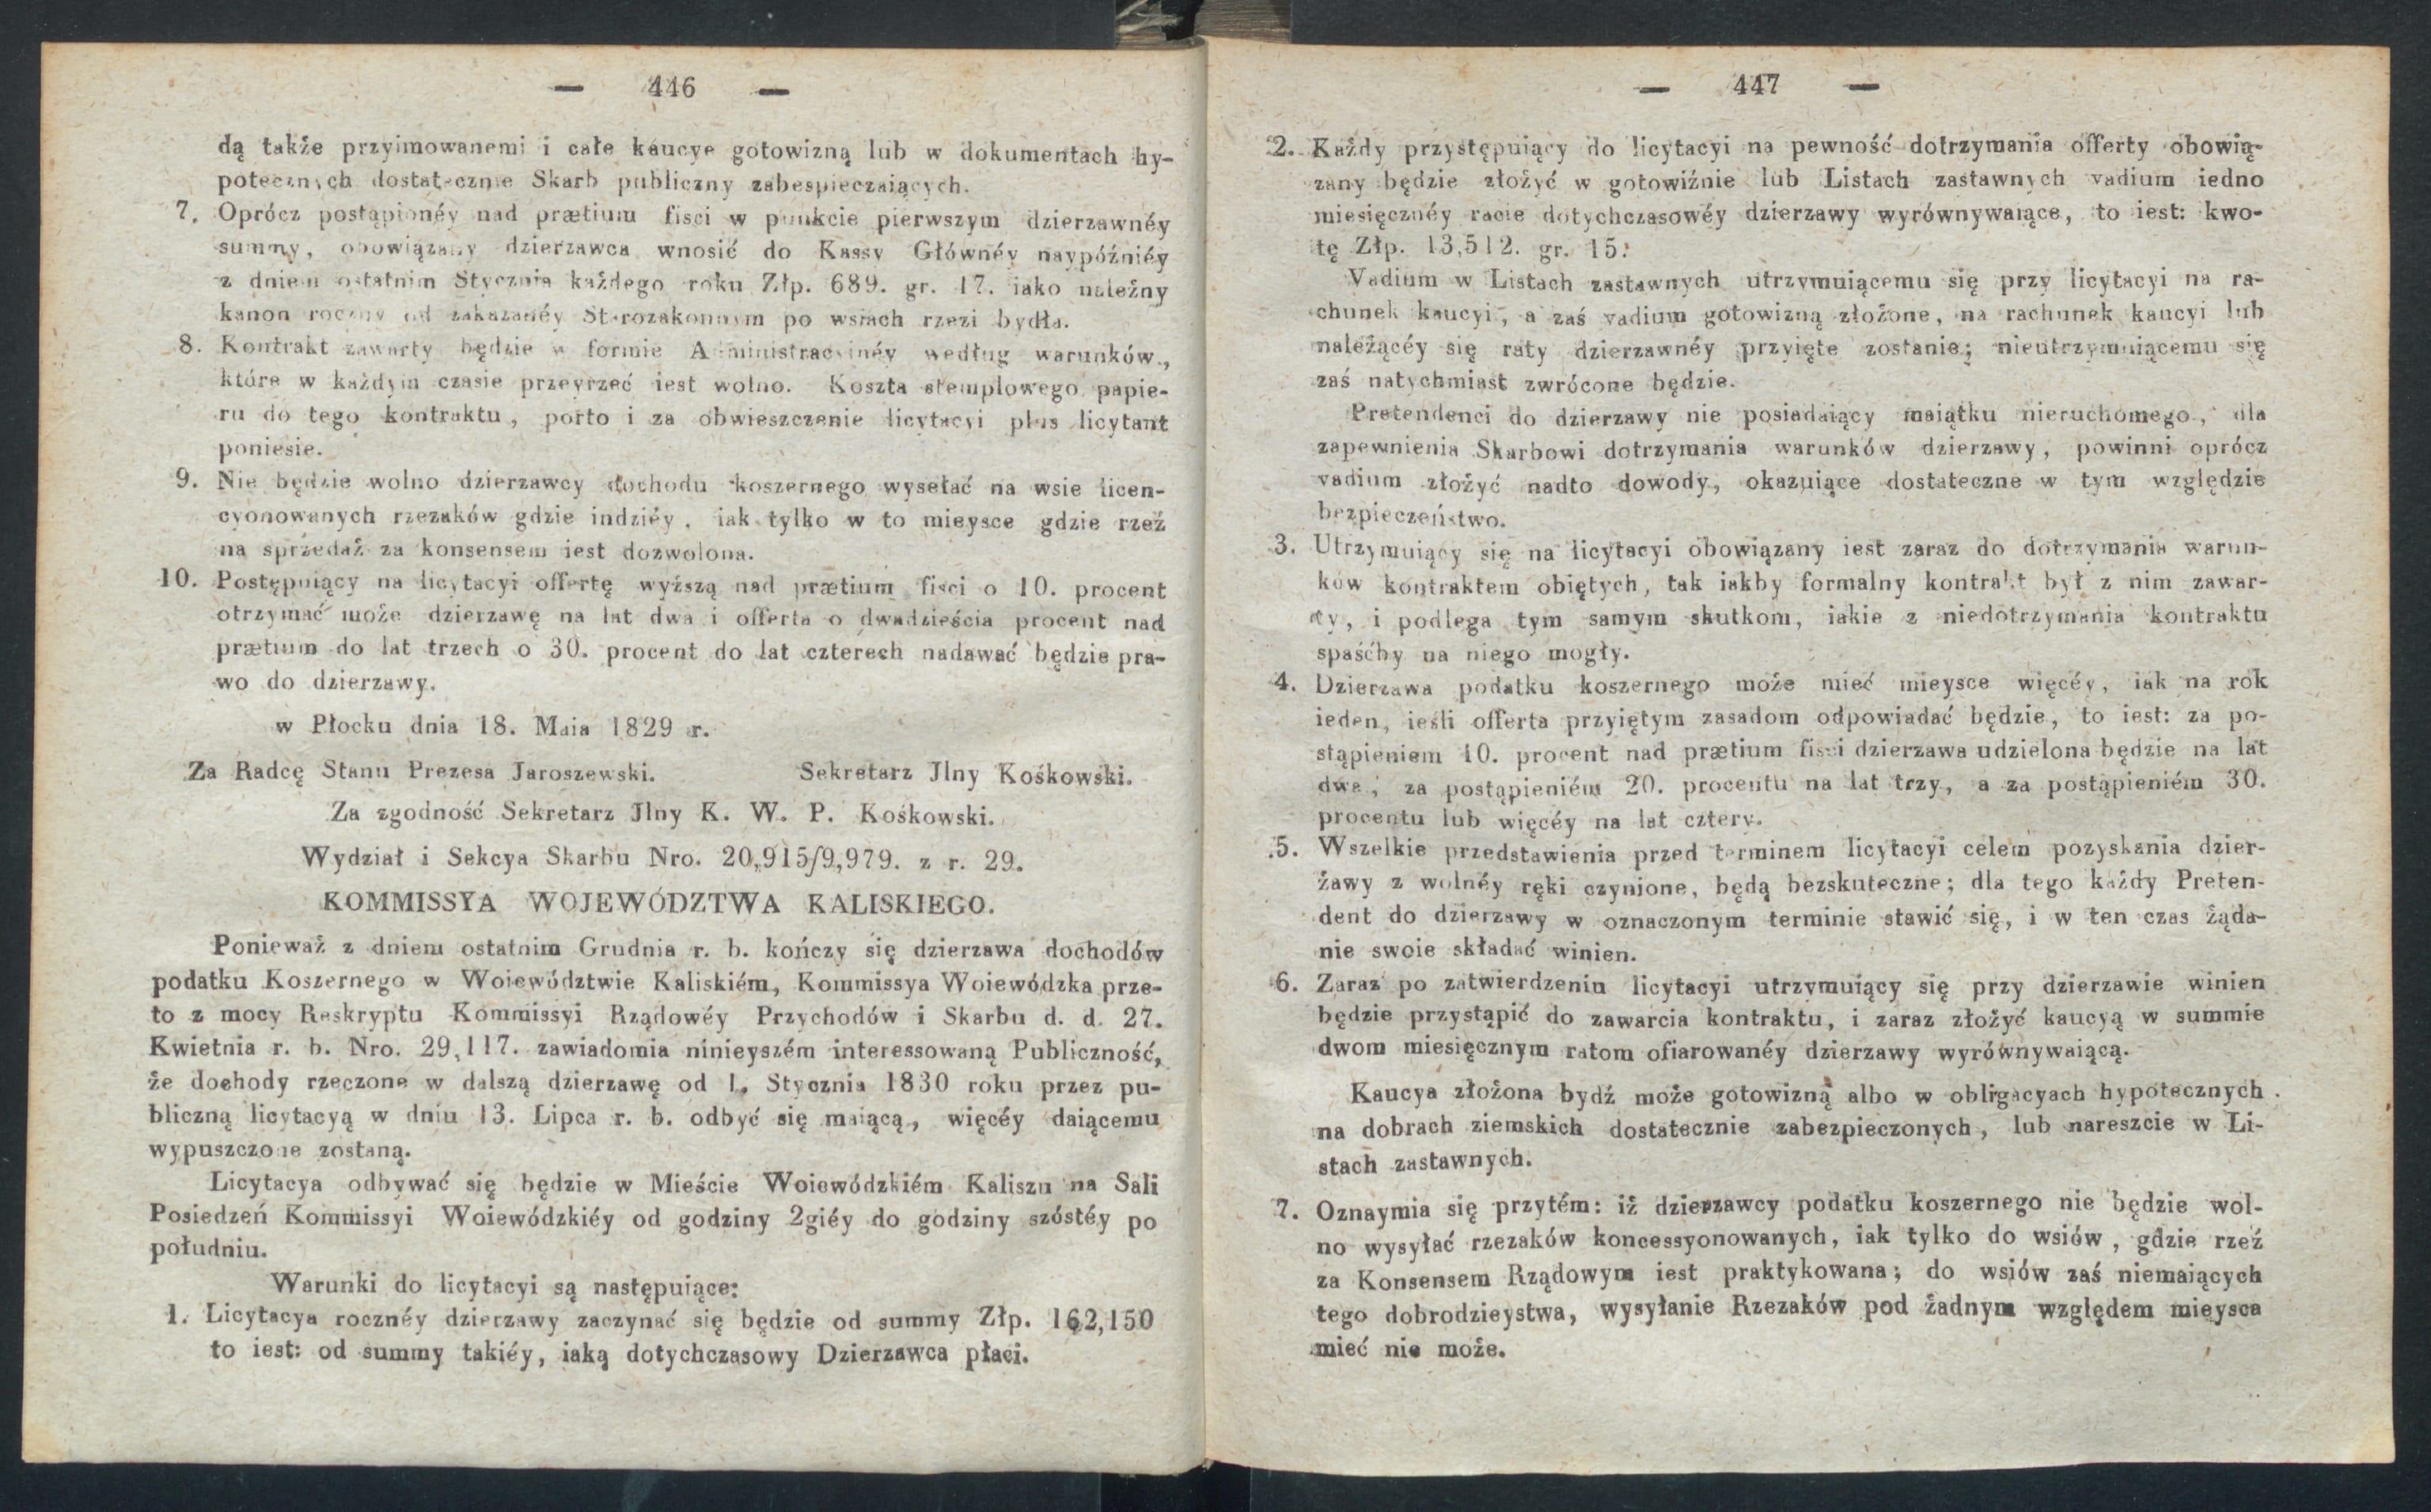 — 446 —
dą także przyimowanemi i całe kaucye gotowizną lub w dokumentach hy-
potecznych dostatecznie Skarb publiczny zabespieczaiących.
7. Oprócz postąpionéy nad prætium fisci w punkcie pierwszym dzierzawnéy
summy, obowiązany dzierzawca wnosić do Kassy Głównéy naypóźniéy
z dniem ostatnim Stycznia każdego roku Złp. 689. gr. 17. iako należny
kanon roczny od zakazanéy Starozakonnym po wsiach rzezi bydła.
8. Kontrakt zawarty będzie w formie Administracyinéy według warunków,
które w każdym czasie przeyrzeć iest wolno. Koszta stemplowego papie-
ru do tego kontraktu, porto i za obwieszczenie licytacyi plus licytant
poniesie.
9. Nie będzie wolno dzierzawcy dochodu koszernego wysełać na wsie licen-
cyonowanych rzezaków gdzie indziéy, iak tylko w to mieysce gdzie rzeź
na sprzedaż za konsensem iest dozwolona.
10. Postępuiący na licytacyi offertę wyższą nad prætium fisci o 10. procent
otrzymać może dzierzawę na lat dwa i offerta o dwadzieścia procent nad
prætium do lat trzech o 30. procent do lat czterech nadawać będzie pra-
wo do dzierzawy.
w Płocku dnia 18. Maia 1829 r.
Za Radcę Stanu Prezesa Jaroszewski. Sekretarz Jlny Kośkowski.
Za zgodność Sekretarz Jlny K. W. P. Kośkowski.
Wydział i Sekcya Skarbu Nro. 20,915/9,979. z r. 29.
KOMMISSYA WOJEWÓDZTWA KALISKIEGO.
Ponieważ z dniem ostatnim Grudnia r. b. kończy się dzierzawa dochodów
podatku Koszernego w Woiewództwie Kaliskiém, Kommissya Woiewódzka prze-
to z mocy Reskryptu Kommissyi Rządowéy Przychodów i Skarbu d. d. 27.
Kwietnia r. b. Nro. 29,117. zawiadomia ninieyszém interessowaną Publiczność,
że dochody rzeczone w dalszą dzierzawę od 1. Stycznia 1830 roku przez pu-
bliczną licytacyą w dniu 13. Lipca r. b. odbyć się maiącą, więcéy daiącemu
wypuszczone zostaną.
Licytacya odbywać się będzie w Mieście Woiewódzkiém Kaliszu na Sali
Posiedzeń Kommissyi Woiewódzkiéy od godziny 2giéy do godziny szóstéy po
południu.
Warunki do licytacyi są następuiące:
1. Licytacya rocznéy dzierzawy zaczynać się będzie od summy Złp. 162,150
to iest: od summy takiéy, iaką dotychczasowy Dzierzawca płaci.
— 447 —
2. Każdy przystępuiący do licytacyi na pewność dotrzymania offerty obowią-
zany będzie złożyć w gotowiźnie lub Listach zastawnych vadium iedno
miesięcznéy racie dotychczasowéy dzierzawy wyrównywaiące, to iest: kwo-
tę Złp. 13,512. gr. 15.
Vadium w Listach zastawnych utrzymuiącemu się przy licytacyi na ra-
chunek kaucyi, a zaś vadium gotowizną złożone, na rachunek kaucyi lub
należącéy się raty dzierzawnéy przyięte zostanie; nieutrzymuiącemu się
zaś natychmiast zwrócone będzie.
Pretendenci do dzierzawy nie posiadaiący maiątku nieruchomego, dla
zapewnienia Skarbowi dotrzymania warunków dzierzawy, powinni oprócz
vadium złożyć nadto dowody, okazuiące dostateczne w tym względzie
bezpieczeństwo.
3. Utrzymuiący się na licytacyi obowiązany iest zaraz do dotrzymania warun-
ków kontraktem obiętych, tak iakby formalny kontrakt był z nim zawar-
ty, i podlega tym samym skutkom, iakie z niedotrzymania kontraktu
spaśćby na niego mogły.
4. Dzierzawa podatku koszernego może mieć mieysce więcéy, iak na rok
ieden, ieśli offerta przyiętym zasadom odpowiadać będzie, to iest: za po-
stąpieniem 10. procent nad prætium fisci dzierzawa udzielona będzie na lat
dwa, za postąpieniém 20. procentu na lat trzy, a za postąpieniém 30.
procentu lub więcéy na lat cztery.
5. Wszelkie przedstawienia przed terminem licytacyi celem pozyskania dzier-
żawy z wolnéy ręki czynione, będą bezskuteczne; dla tego każdy Preten-
dent do dzierzawy w oznaczonym terminie stawić się, i w ten czas żąda-
nie swoie składać winien.
6. Zaraz po zatwierdzeniu licytacyi utrzymuiący się przy dzierzawie winien
będzie przystąpić do zawarcia kontraktu, i zaraz złożyć kaucyą w summie
dwom miesięcznym ratom ofiarowanéy dzierzawy wyrównywaiącą.
Kaucya złożona bydź może gotowizną albo w obligacyach hypotecznych
na dobrach ziemskich dostatecznie zabezpieczonych, lub nareszcie w Li-
stach zastawnych.
7. Oznaymia się przytém: iż dzierzawcy podatku koszernego nie będzie wol-
no wysyłać rzezaków koncessyonowanych, iak tylko do wsiów, gdzie rzeź
za Konsensem Rządowym iest praktykowana; do wsiów zaś niemaiących
tego dobrodzieystwa, wysyłanie Rzezaków pod żadnym względem mieysca
mieć nie może.